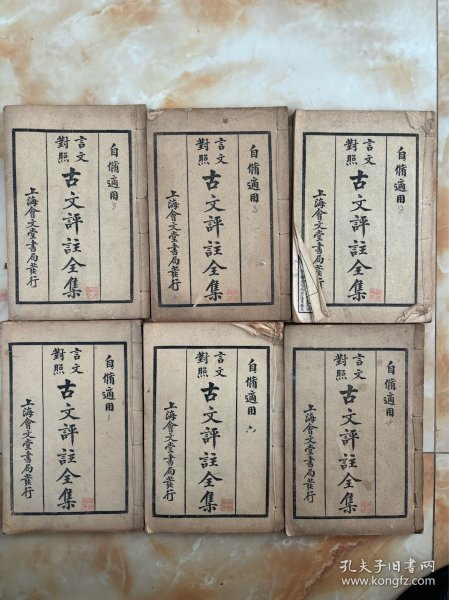 自脩適用
言文對照
古文評註全集
上海會文堂書局發行
自脩適用
言文對照
古文評註全集
上海會文堂書局發行
自脩適用
言文對照
古文評註全集
上海會文堂書局發行
自脩適用
言文對照
古文評註全集
上海會文堂書局發行
自脩適用 六
言文對照
古文評註全集
上海會文堂書局發行
自脩適用
言文對照
古文評註全集
上海會文堂書局發行
孔夫子旧书网
www.kongfz.com